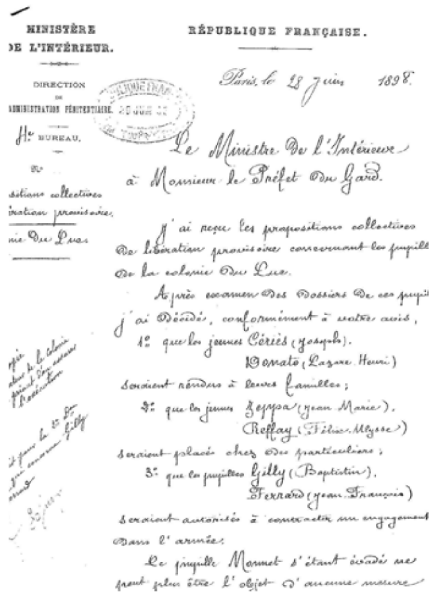 MINISTÈRE
DE L'INTÉRIEUR.
DIRECTION
DE
ADMINISTRATION PÉNITENTIAIRE.
4e BUREAU.
No
ositions collectives
ération provisoire.
nie du Luc
RÉPUBLIQUE FRANÇAISE.
Paris, le 28 Juin 1898.
Le Ministre de l'Intérieur
à Monsieur le Préfet du Gard.
J'ai reçu les propositions collectives
de libération provisoire concernant les pupille
de la colonie du Luc.
Après examen des dossiers de ces pupil
j'ai décidé, conformément à votre avis,
1o que les jeunes Cériès (Joseph),
Donato (Lazare Henri)
seraient rendus à leurs familles;
2o que les jeunes Zeppa (Jean Marie),
Reffay (Félix Ulysse)
seraient placés chez des particuliers;
3o que les pupilles Gilly (Baptistin),
Ferrard (Jean François)
seraient autorisés à contracter un engagement
dans l'armée.
Le pupille Monnet s'étant évadé ne
peut plus être l'objet d'aucune mesure
de la colonie
Gilly